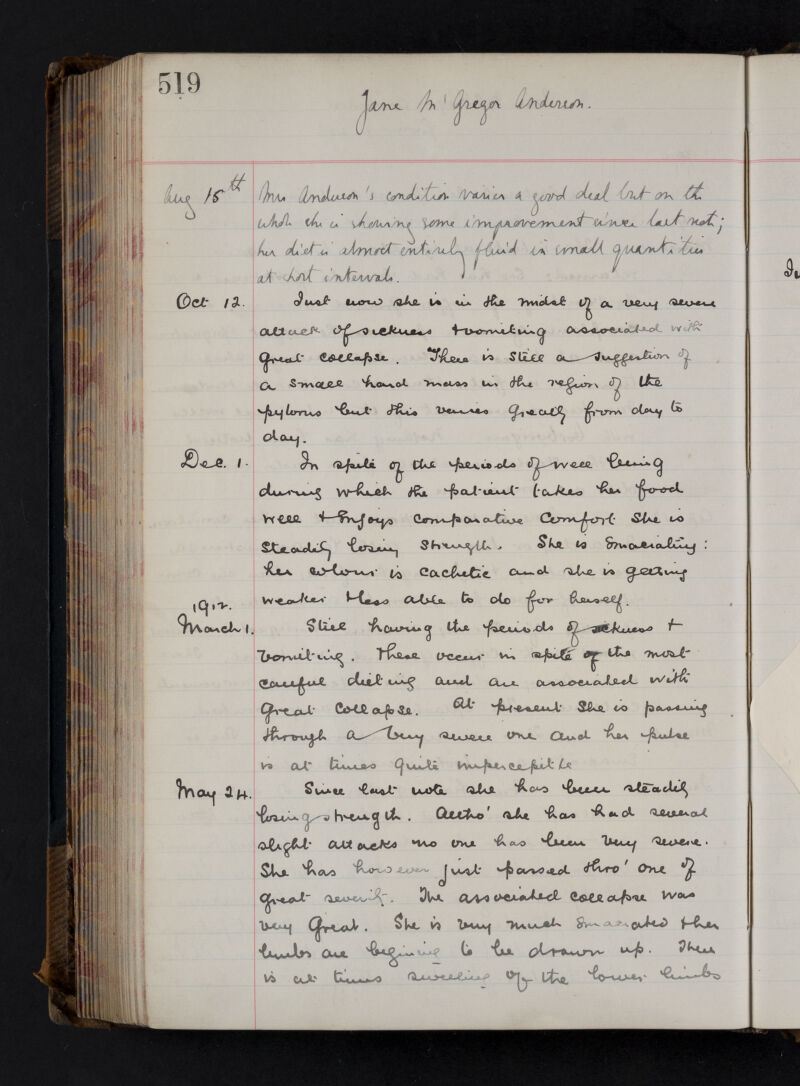 519
Jane McGregor Anderson.
Aug 15th Mrs Anderson's condition varies a good deal but on the
whole she is showing some improvement since last note;
her diet is almost entirely fluid in small quantities
at short intervals.
Oct 12. Just now she is in the midst of a very severe
attack of sickness + vomiting associated with
great collapse. There is still a suggestion of
a small hard mass in the region of the
pylorus but this varies greatly from day to
day.
Dec. 1. In spite of the periods of well being
during which the patient takes her food
well + enjoys comparative comfort she is
steadily losing strength. She is emaciating:
her colour is cachetic and she is getting
weaker + less able to do for herself.
1912.
March 1. Still having the periods of sickness +
vomiting. These occur in spite of the most
careful dieting and are associated with
great collapse. At present she is passing
through a very severe one and her pulse
is at times quite imperceptible
May 24. Since last note she has been steadily
losing strength. Altho' she has had several
slight attacks no one has been very severe.
She has however just passed thro' one of
great severity. The associated collapse was
very great. She is very much emaciated + her
limbs are begining to be drawn up. There
is at times swelling of the lower limbs